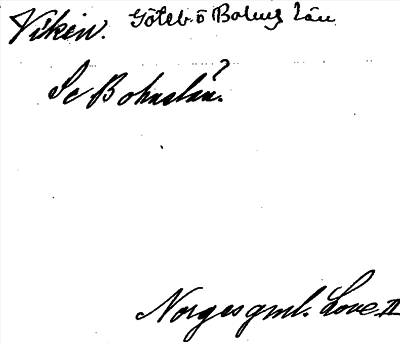 Viken. Göteb. o Bohus län
Se Bohuslän.
Norges gml. Love II